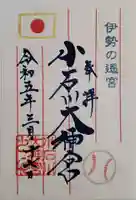 伊勢の遥宮
奉拝
小石川大神宮
令和五年三月十六日